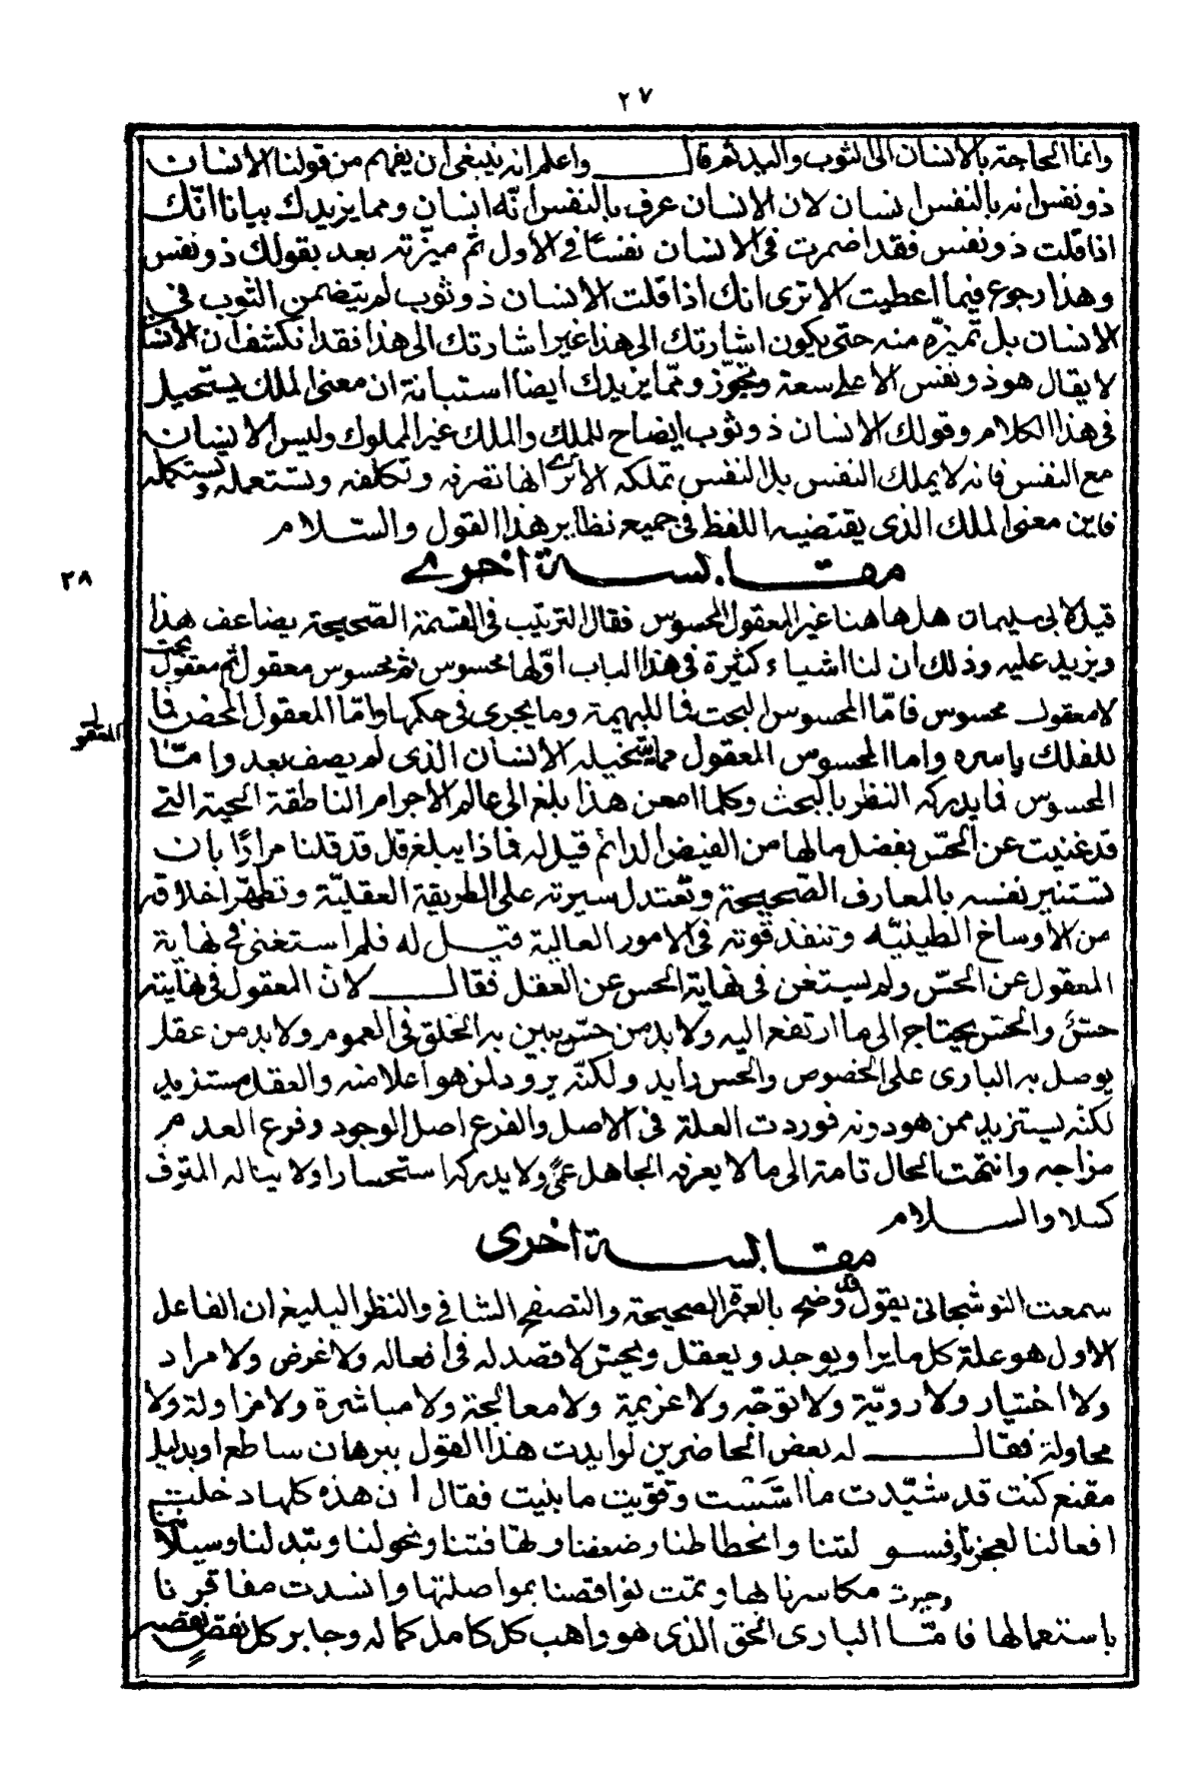 ٢٧
وانما الحاجة بالانسان الى الثوب واليد ثم قال واعلم انه ينبغى ان يفهم من قولنا الانسان
ذو نفس انه بالنفس انسان لان الانسان عرف بالنفس انّه انسان ومما يزيدك بيانا انّك
اذا قلت ذو نفس فقد اضمرت فى الانسان نفسًا فى الأول ثم ميّزته بعد بقولك ذو نفس
وهذا رجوع فيما اعطيت الا ترى انك اذا قلت الانسان ذو ثوب لم يتضمن الثوب فى
الانسان بل تميزّه منه حتى يكون اشارتك الى هذا غير اشارتك الى هذا فقد انكشف ان الانسا
لا يقال هو ذو نفس الا على سعة وتجوّز وممّا يزيدك ايضا استبانة ان معنى الملك يستحيل
فى هذا الكلام وقولك الانسان ذو ثوب ايضاح للملك والملك غير المملوك وليس الانسان
مع النفس فانه لا يملك النفس بل النفس تملكه الا ترى انها تصرفه وتكلفه وتستعمله وتستكمله
فاين معنى الملك الذى يقتضيه اللفظ فى جميع نظاير هذا القول والسّلام
مقابسة اخرى
٢٨
قيل لابى سليمان هل هاهنا غير المعقول المحسوس فقال الترتيب فى القسمة الصّحيحة يضاعف هذا
ويزيد عليه وذلك ان لنا اشياء كثيرة فى هذا الباب اوّلها محسوس ثم محسوس معقول ثم معقول بحت
لا معقول محسوس فامّا المحسوس البحت فما للبهيمة وما يجرى فى حكمها وامّا المعقول المحض فما
للفلك باسره واما المحسوس المعقول فما يتخيله الانسان الذى لم يصف بعد وامّا
المعقول
المحسوس فما يدركه النظر بالبحث وكلما امعن هذا بلغ الى عالم الاجرام الناطقة الحية التى
قد غنيت عن الحسّ بفضل مالها من الفيض الدائم قيل له فماذا يبلغ قال قد قلنا مرارًا بان
تستنير نفسه بالمعارف الصّحيحة وتعتدل سيرته على الطريقة العقليّة وتطهر اخلاقه
من الأوساخ الطينيّه وتنفذ قوته فى الامور العالية قيل له فلم استغنى فى نهاية
المعقول عن الحسّ ولم يستغن فى نهاية الحس عن العقل فقال لانّ المعقول فى نهايته
حسّى والحس يحتاج الى ما ارتفع اليه ولا بد من حسّ يبين به الخلق فى العموم ولا بد من عقل
يوصل به البارى على الخصوص والحس رايد ولكنّه يرود لمن هو اعلا منه والعقل مستزيد
لكنّه يستزيد ممن هو دونه فوردت العلة فى الاصل والفرع اصل الوجود وفرع العدم
مزاجه وانتهت الحال تامة الى مالا يعرفه الجاهل عمىً ولا يدركه استحسارا ولا يناله المتوف
كسلا والسلام
مقابسة اخرى
سمعت النوشجانى يقول قد وضح بالعبرة الصحيحة والتصفح الشافى والنظر البليغ ان الفاعل
الاول هو علة كل ما يرا ويوجد ويعقل ويحس لا قصد له فى افعاله ولا غرض ولا مراد
ولا اختيار ولا رويّة ولا توجّه ولا عزيمة ولا معالجة ولا مباشرة ولا مزاولة ولا
محاولة فقال له بعض الحاضرين لو ايدت هذا القول ببرهان ساطع او بدليل
مقنع كنت قد شيّدت ما اسّست وقوّيت ما بنيت فقال ان هذه كلها دخلت
افعالنا لعجزنا وفسولتنا وانحطاطنا وضعفنا وتهافتنا ونحولنا وتبدلنا وسيلا
وجبرت مكاسرنا لها وتمت نواقصنا بمواصلتها وانسدت مفاقرنا
باستعمالها فامّا البارى الحق الذى هو واهب كل كامل كماله وجابر كل نقص